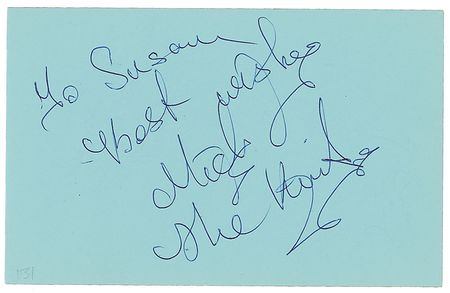 To Susan
best wishes
Mick
The Kinks
131